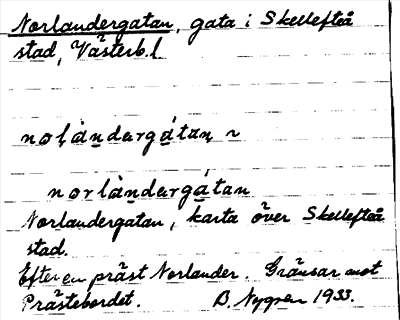 Norlandergatan, gata i Skellefteå
stad, Västerb.l.
noḷàndergátaṇ ~
norlàndergátan
Norlandergatan, karta över Skellefteå
stad.
Efter en präst Norlander. Gränsar mot
Prästebordet. D. Nygren 1933.